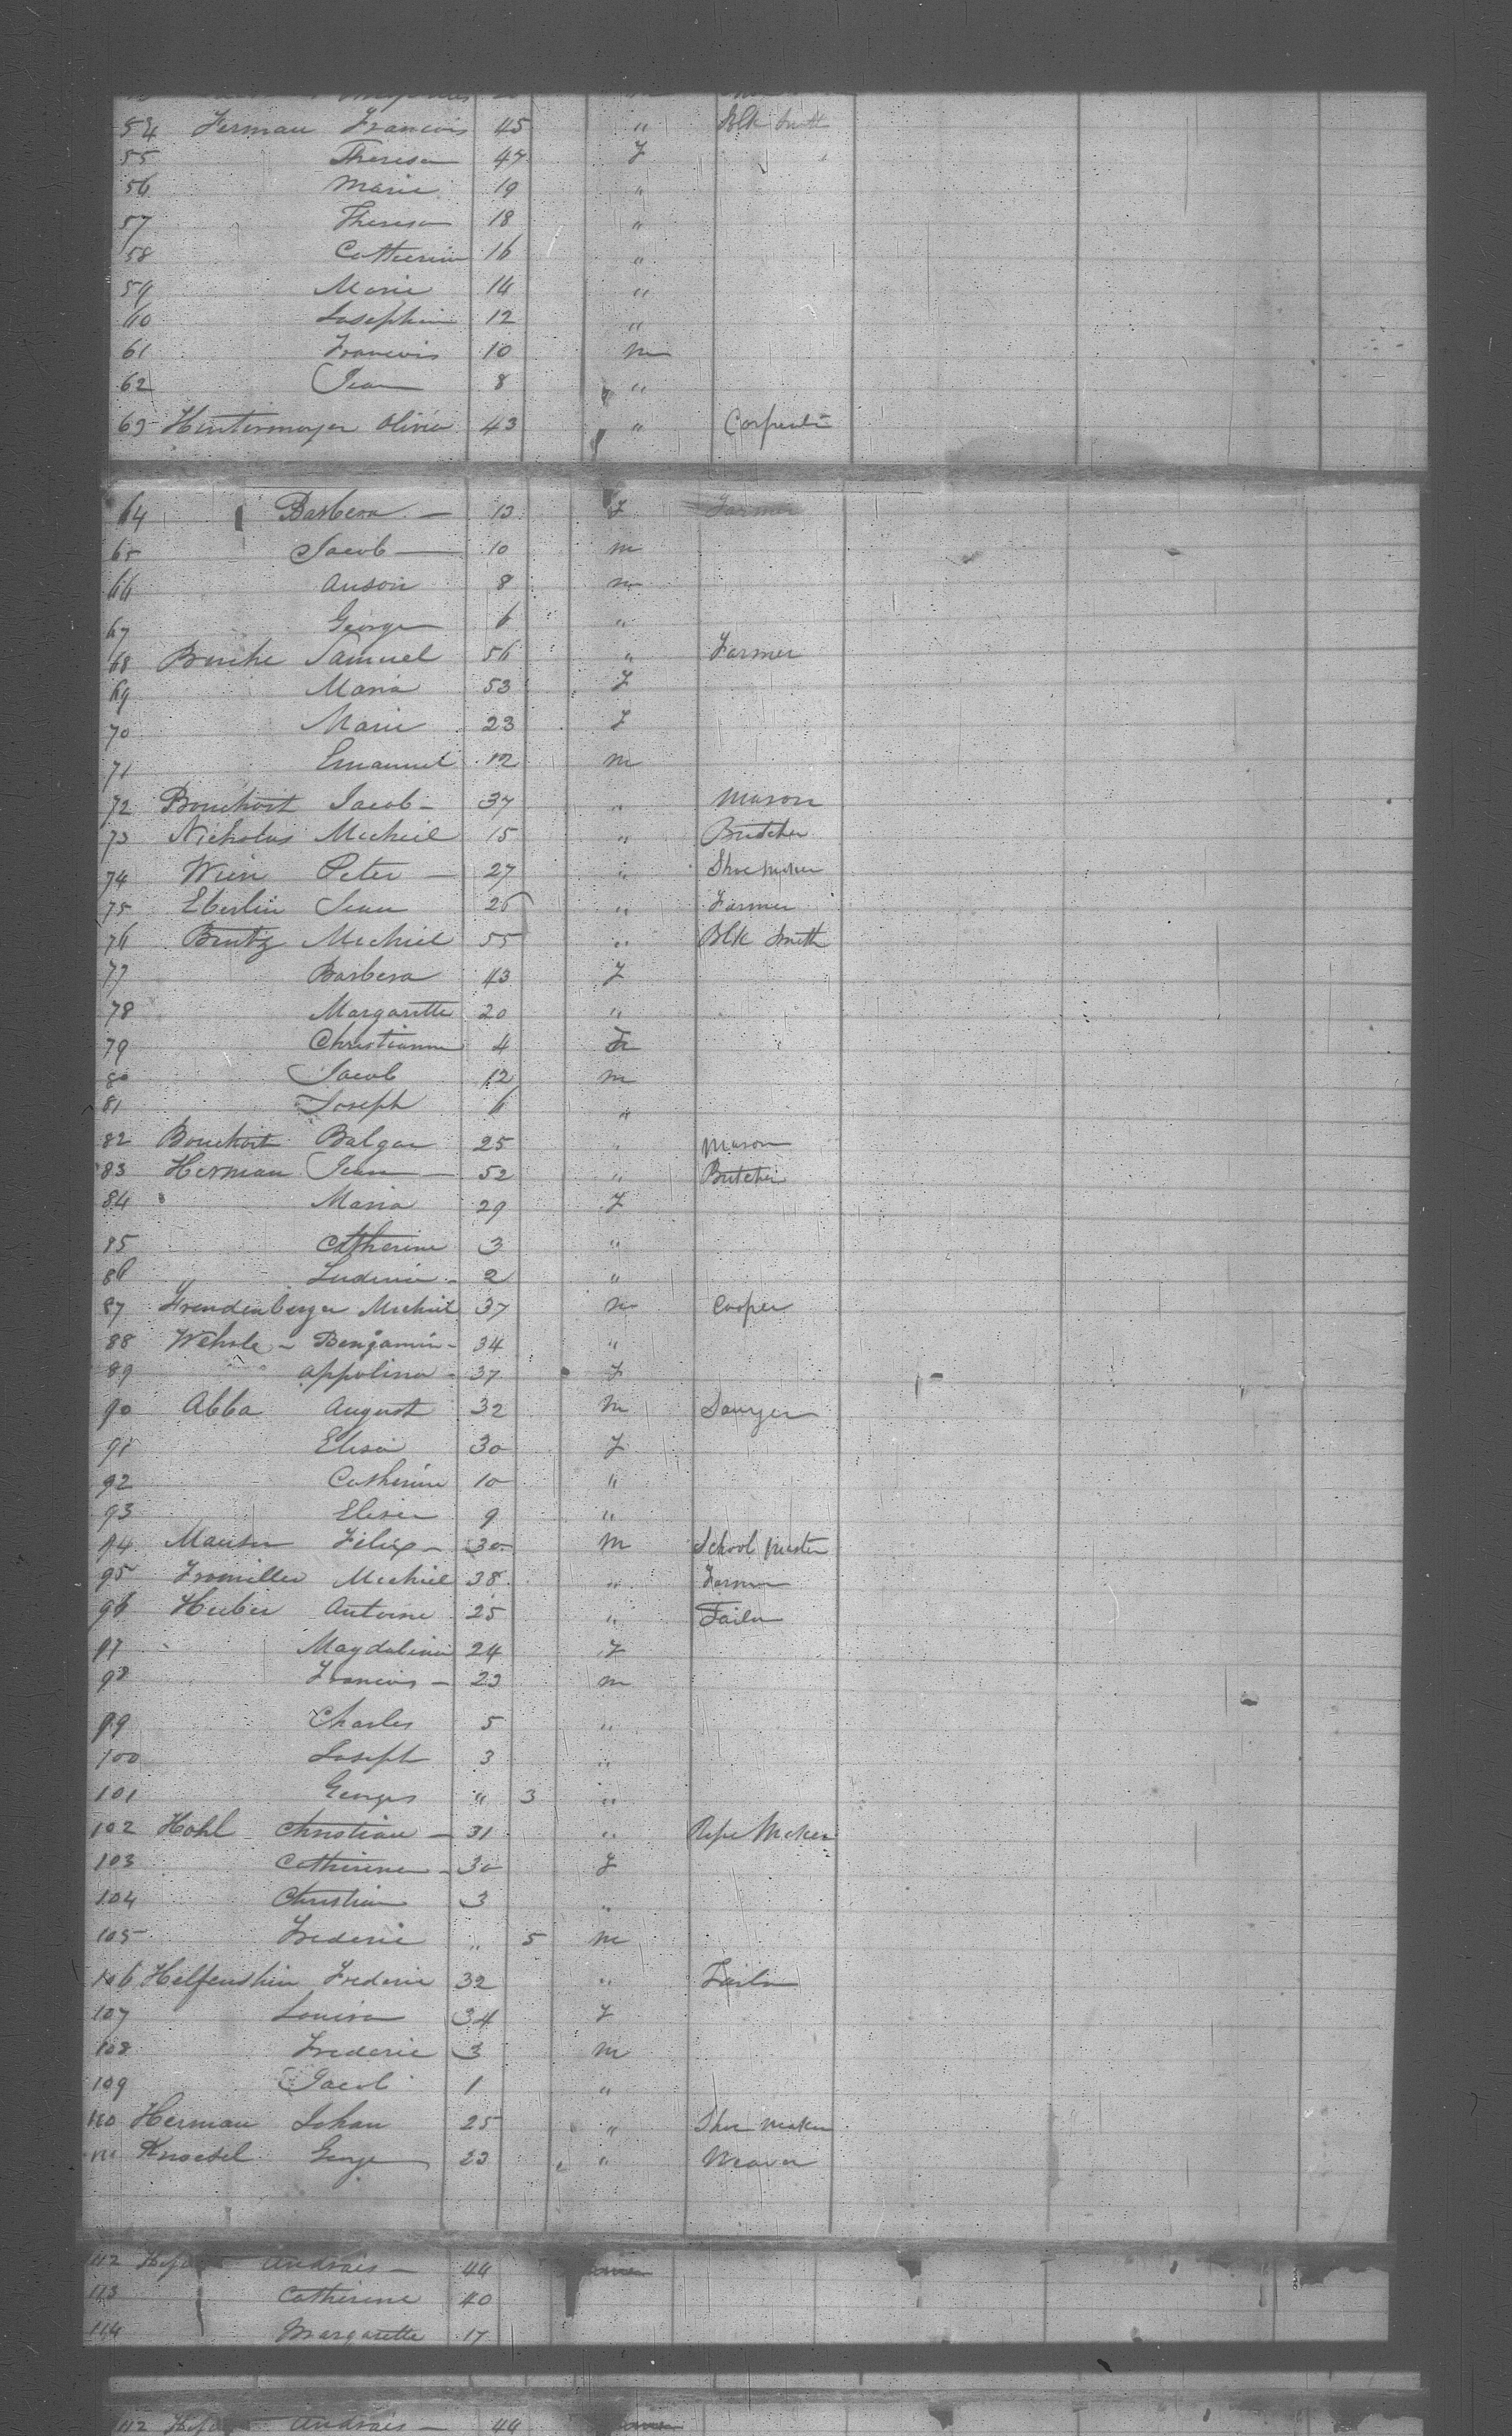 54 Ferman Francois 45 " Blk Smith
55 Theresa 47 F
56 Marie 19 "
57 Theresa 18 "
58 Catherine 16 "
59 Marie 14 "
60 Josephine 12 "
61 Francois 10 m
62 Jean 8 "
63 Hintermayer Olivier 43 " Carpenter
64 Barbera — 13 F Farmer
65 Jacob — 10 m
66 Anson 8 m
67 George 6 "
68 Samuel 56 " Farmer
69 Maria 53 F
70 Marie 23 F
71 Emanuel 12 m
72 Bouchort Jacob - 37 " Mason
73 Nicholas Michiel 15 " Butcher
74 Wien Peter — 27 " Shoe maker
75 Eberlin Jean 26 " Farmer
76 Bentz Michiel 55 " Blk Smith
77 Barbera 43 F
78 Margarette 20 "
79 Christianne 4 F
80 Jacob 12 m
81 Joseph 6 "
82 Bouchort Balgar 25 " Mason
83 Herman Jean — 52 " Butcher
84 " Maria 29 F
85 Catherine 3 "
86 - 2 "
87 Freudenberger Michiel 37 m Cooper
88 Wehrle - Benjamin - 34 "
89 Appolina - 37 F
90 Abba August 32 M Sawyer
91 Elisa 30 F
92 Catherine 10 "
93 9 "
94 Felix - 30 M School Master
95 Fromiller Michiel 38 " Farmer
96 Huber Antoine 25 " Tailor
97 Magdalina 24 F
98 Francois - 23 m
99 Charles 5 "
100 Joseph 3 "
101 Georges " 3 "
102 Hohl Christian - 31 " Rope Maker
103 Catherine - 30 F
104 Christian 3 "
105 Frederic " 5 m
106 Helfenshin Frederic 32 " Tailor
107 Louisa 34 F
108 Frederic 3 m
109 Jacob 1 "
110 Herman Johan 25 " Shoe maker
111 Knoebel George 23 " Weaver
112 Andrais — 44
113 Catherine 40
114 Margarette 17
112 Andrais — 44